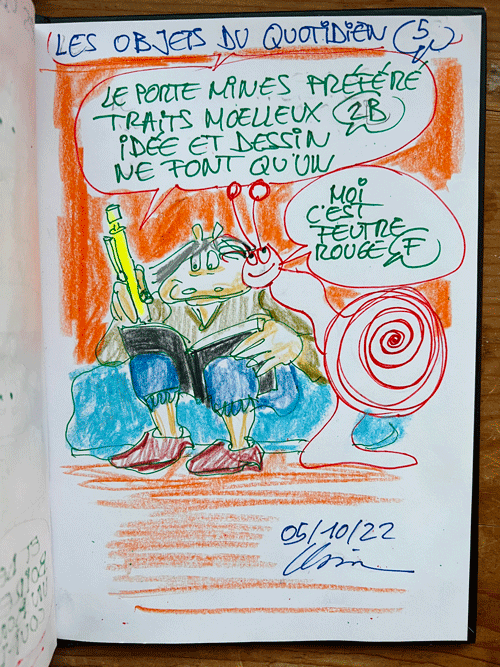 LES OBJETS DU QUOTIDIEN 5
LE PORTE MINES PRÉFÉRÉ
TRAITS MOELLEUX 2B
IDÉE ET DESSIN
NE FONT QU'UN
MOI
C'EST
FEUTRE
ROUGE F
05/10/22